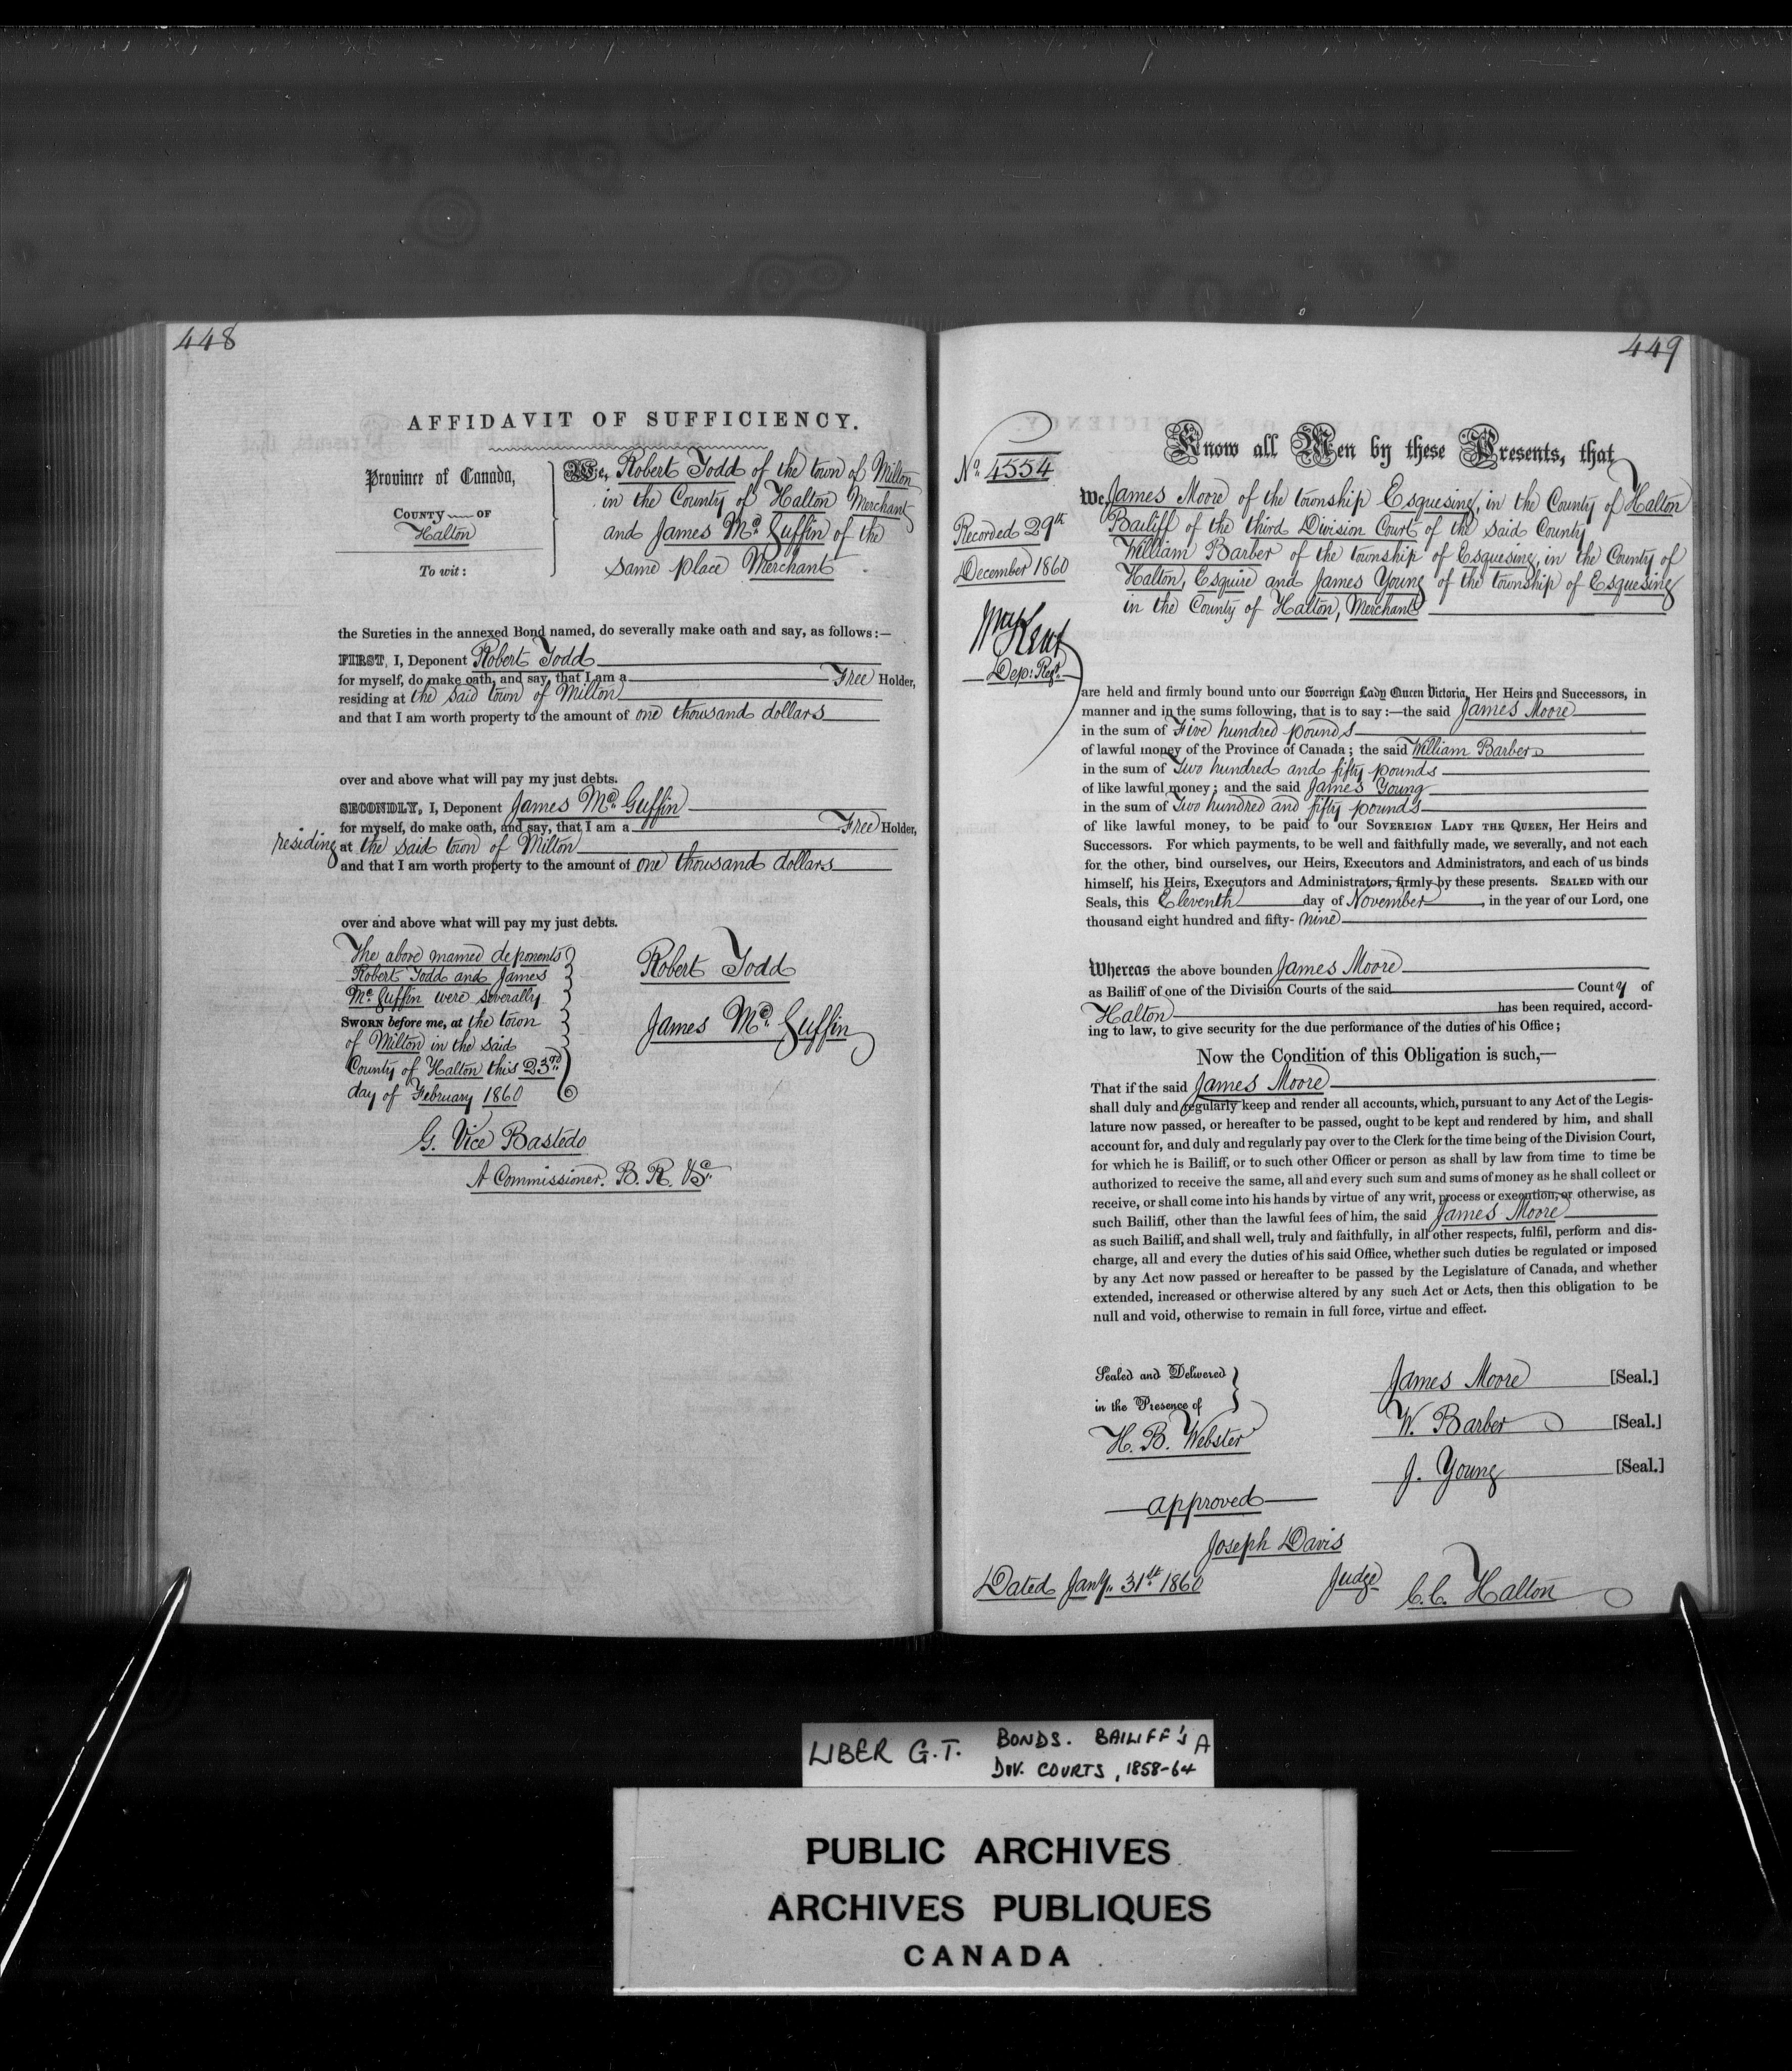 448
AFFIDAVIT OF SUFFICIENCY.
Province of Canada,
COUNTY OF
Halton
To wit:
We, Robert Todd of the town of Milton
in the County of Halton Merchant
and James Mc. Guffin of the
same place Merchant
the Sureties in the annexed Bond named, do severally make oath and say, as follows:—
FIRST, I, Deponent Robert Todd
for myself, do make oath, and say, that I am a Free Holder,
residing at the said town of Milton
and that I am worth property to the amount of one thousand dollars
over and above what will pay my just debts.
SECONDLY, I, Deponent James Mc. Guffin
for myself, do make oath, and say, that I am a Free Holder,
residing at the said town of Milton
and that I am worth property to the amount of one thousand dollars
over and above what will pay my just debts.
The above named deponents
Robert Todd and James
Mc. Guffin were severally
SWORN before me, at the town
of Milton in the said
County of Halton this 23rd
day of February 1860
Robert Todd
James Mc. Guffin
G. Vice Bastedo
A Commissioner. B. R. &c.
449
No. 4554
Recorded 29th
December 1860
Wm Kent
Dep: Regr.
Know all Men by these Presents, that
We James Moore of the township Esquesing, in the County of Halton
Bailiff of the third Division Court of the said County
William Barber of the township of Esquesing, in the County of
Halton, Esquire and James Young of the township of Esquesing
in the County of Halton, Merchant
are held and firmly bound unto our Sovereign Lady Queen Victoria, Her Heirs and Successors, in
manner and in the sums following, that is to say:—the said James Moore
in the sum of Five hundred pounds
of lawful money of the Province of Canada; the said William Barber
in the sum of Two hundred and fifty pounds
of like lawful money; and the said James Young
in the sum of Two hundred and fifty pounds
of like lawful money, to be paid to our SOVEREIGN LADY THE QUEEN, Her Heirs and
Successors. For which payments, to be well and faithfully made, we severally, and not each
for the other, bind ourselves, our Heirs, Executors and Administrators, and each of us binds
himself, his Heirs, Executors and Administrators, firmly by these presents. SEALED with our
Seals, this Eleventh day of November, in the year of our Lord, one
thousand eight hundred and fifty-nine
Whereas the above bounden James Moore
as Bailiff of one of the Division Courts of the said County of
Halton has been required, accord-
ing to law, to give security for the due performance of the duties of his Office;
Now the Condition of this Obligation is such,—
That if the said James Moore
shall duly and regularly keep and render all accounts, which, pursuant to any Act of the Legis-
lature now passed, or hereafter to be passed, ought to be kept and rendered by him, and shall
account for, and duly and regularly pay over to the Clerk for the time being of the Division Court,
for which he is Bailiff, or to such other Officer or person as shall by law from time to time be
authorized to receive the same, all and every such sum and sums of money as he shall collect or
receive, or shall come into his hands by virtue of any writ, process or execution, or otherwise, as
such Bailiff, other than the lawful fees of him, the said James Moore
as such Bailiff, and shall well, truly and faithfully, in all other respects, fulfil, perform and dis-
charge, all and every the duties of his said Office, whether such duties be regulated or imposed
by any Act now passed or hereafter to be passed by the Legislature of Canada, and whether
extended, increased or otherwise altered by any such Act or Acts, then this obligation to be
null and void, otherwise to remain in full force, virtue and effect.
Sealed and Delivered
in the Presence of
H. B. Webster
James Moore [Seal.]
W. Barber [Seal.]
J. Young [Seal.]
approved
Joseph Davis
Judge C.C. Halton
Dated Jany. 31st 1860
LIBER G.T. BONDS. BAILIFF'S A
DIV. COURTS, 1858-64
PUBLIC ARCHIVES
ARCHIVES PUBLIQUES
CANADA